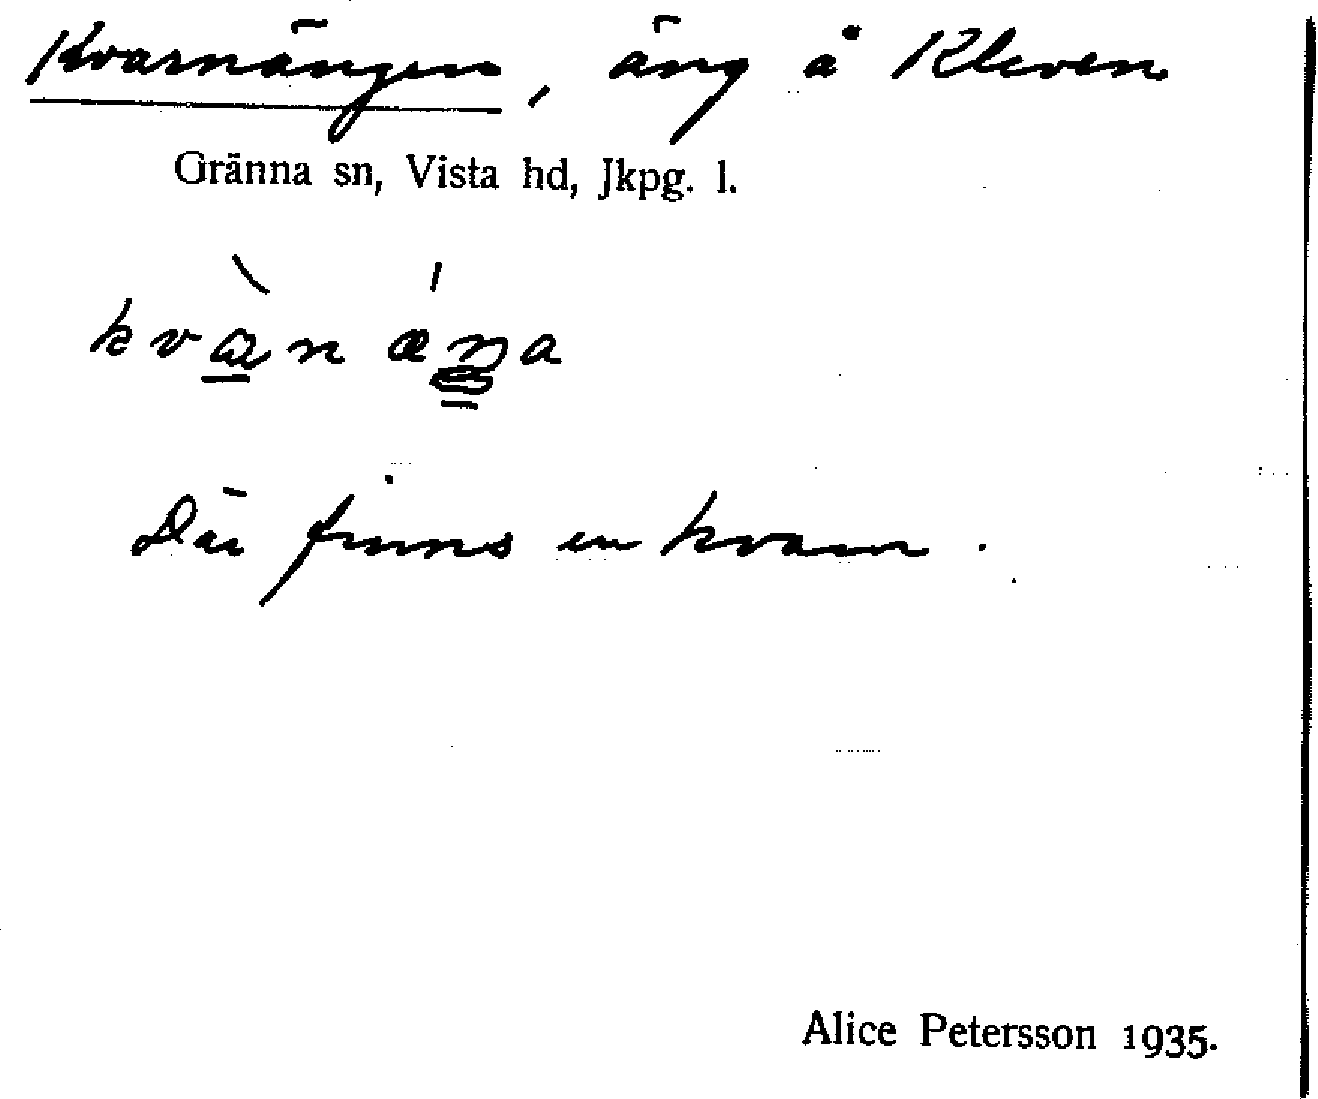 Kvarnängen, äng å Kleven
Gränna sn, Vista hd, Jkpg. l.
kvàn ǽŋa
Där finns en kvarn.
Alice Petersson 1935.